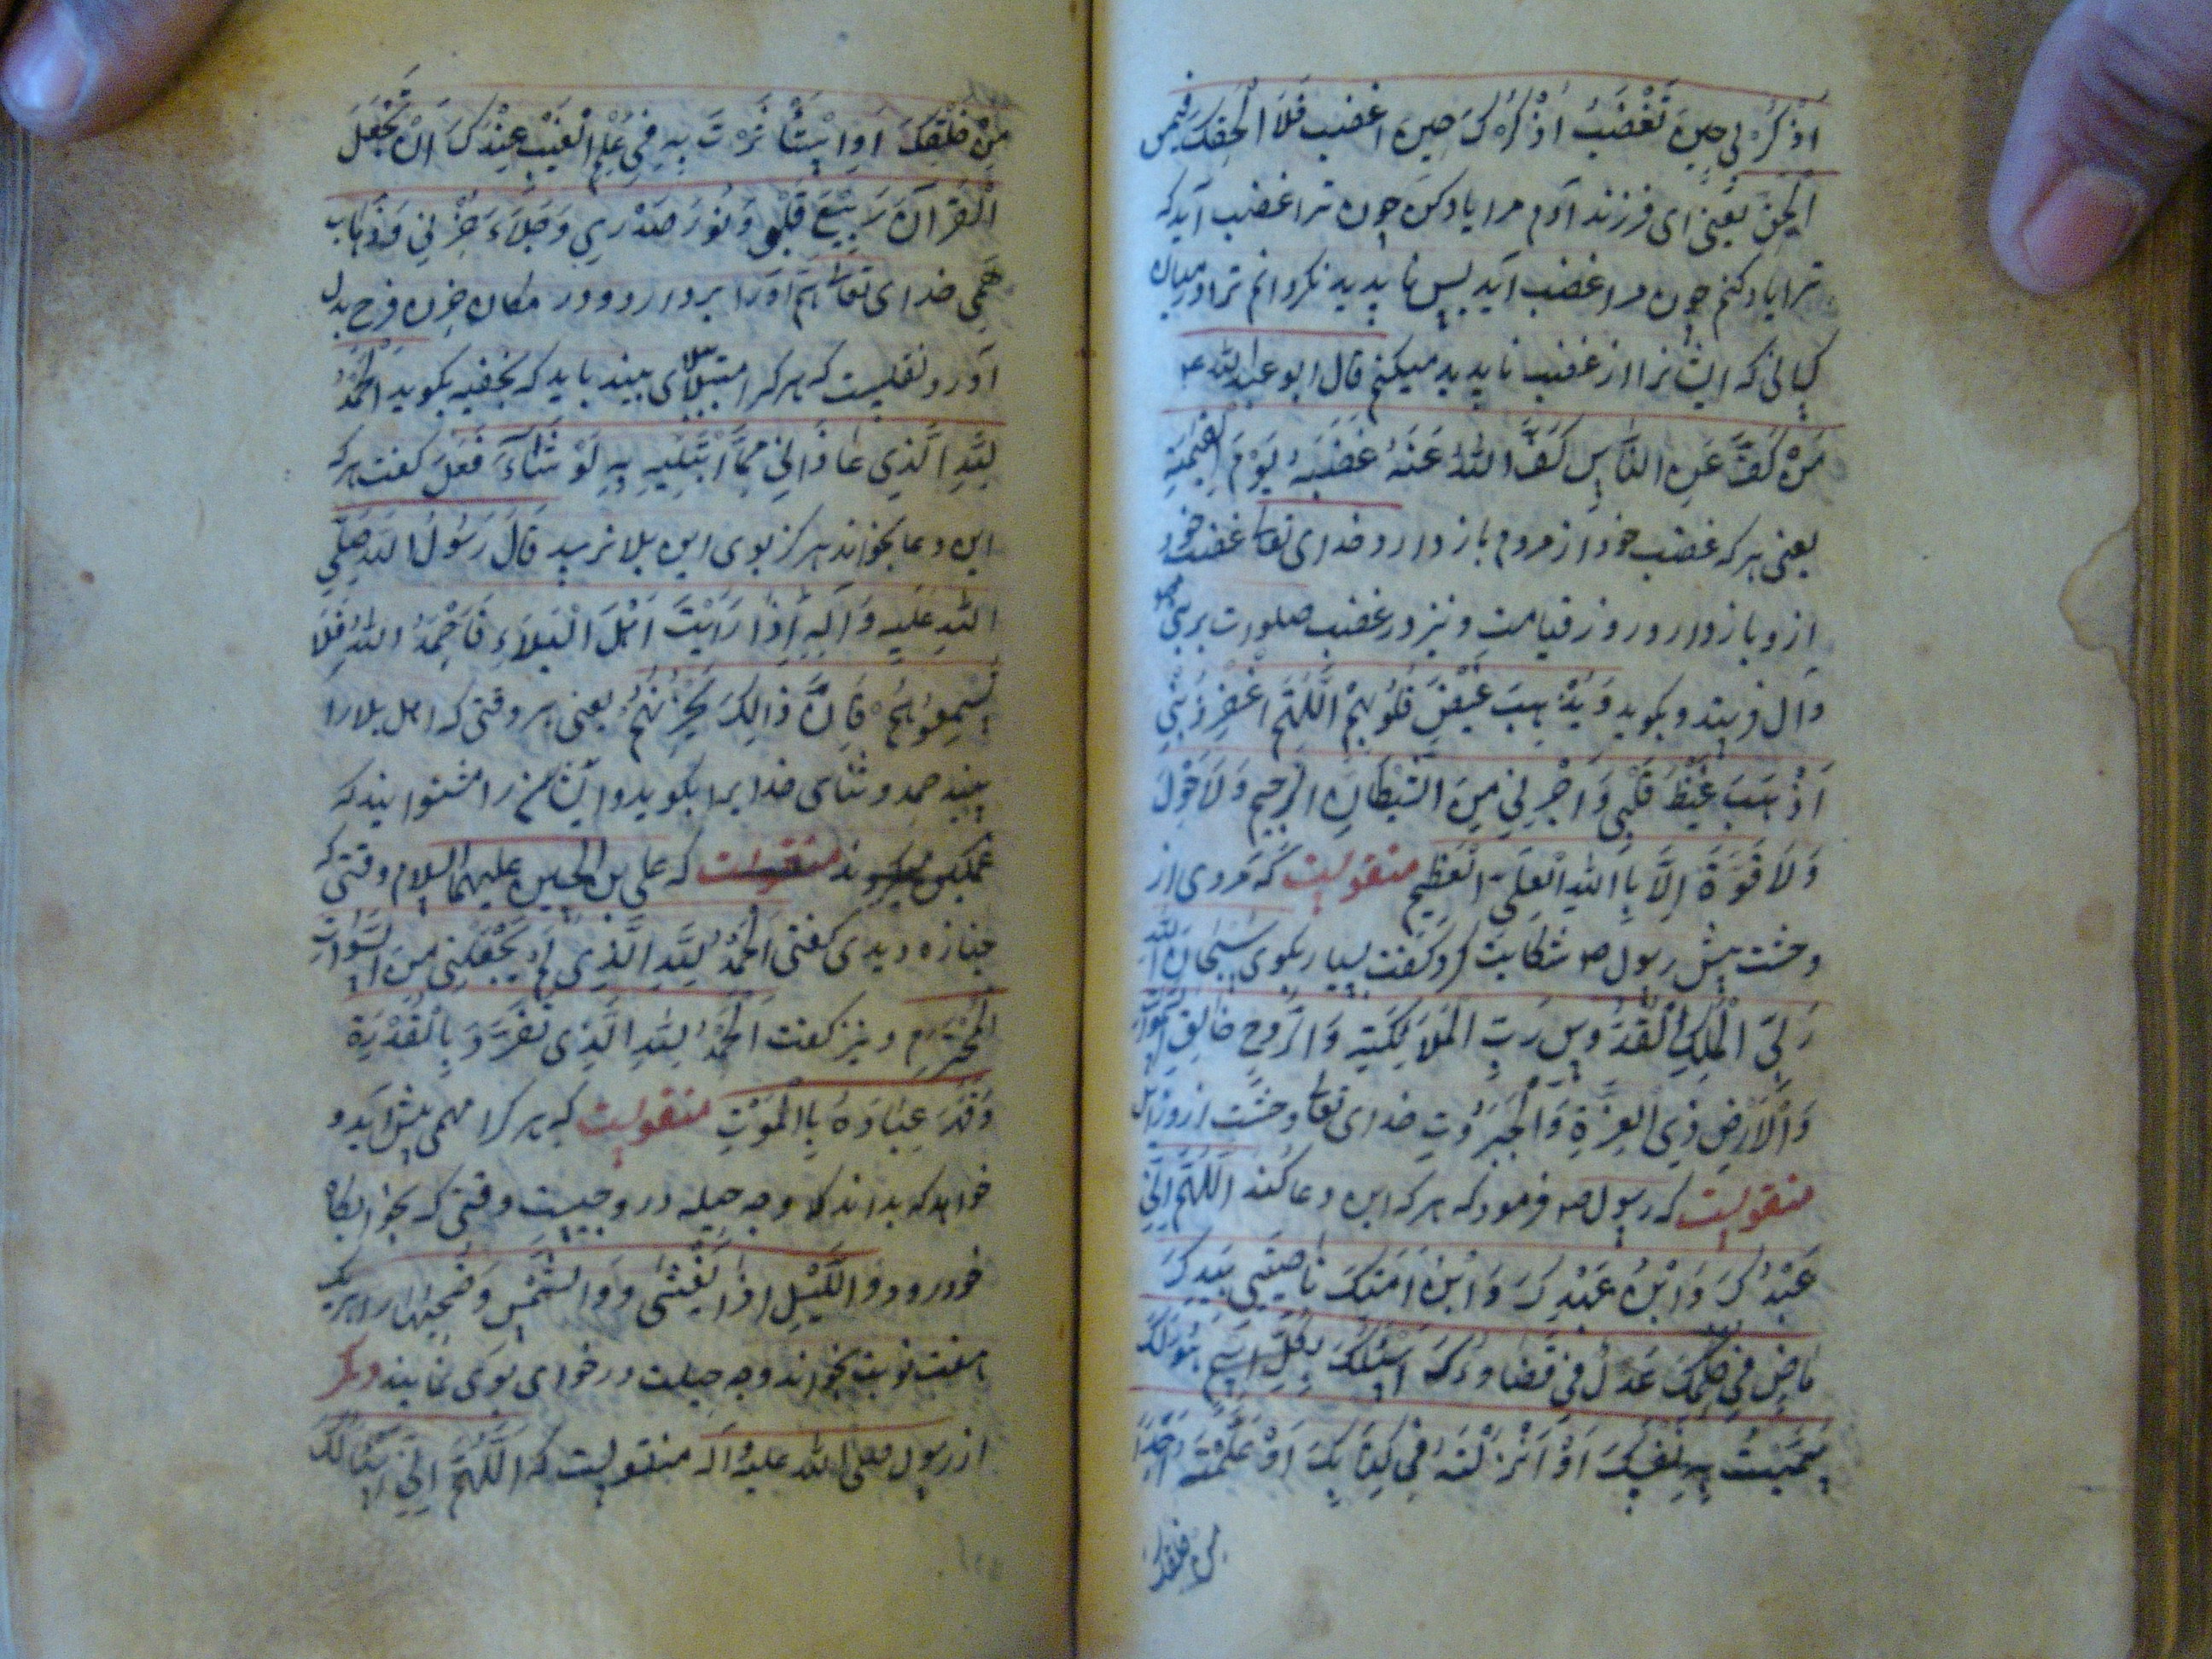 اُذْكُرْنِي حِينَ تَغْضَبُ اُذْكُرْكَ حِينَ اغضب فَلَا اَمْحَقْكَ فِيمَن
اَمْحَقُ يعنى اى فرزند آدم مرا ياد كن چون ترا غضب آيد كه
ترا ياد كنم چون مرا غضب آيد پس ناپديد نكردانم ترا درميان
كسانى كه ايشانرا از غضب ناپديد ميكنم قال ابو عبد الله ع
مَنْ كَفَّ عَنِ النَّاسِ كَفَّ اللهُ عَنْهُ غَضَبَهُ يَوْمَ الْقِيمَةِ
يعنى هركه غضب خود از مردم باز دارد خداى تعالى غضب خود
ازو باز دارد روز قيامت و نيز در غضب صلوات بر نبى
وآل فرستد و بكويد وَيُذْهِبَ غَيْضَ قُلُوبِهِمْ اَللَّهُمَّ اغْفِرْ ذَنْبِي
اَذْهَبَ غَيْظَ قَلْبِي وَاَجْرِنِي مِنَ الشَّيْطَانِ الرَّجِيمِ وَلَا حَوْلَ
وَلَا قُوَّةَ اِلَّا بِاللهِ الْعَلِيِّ الْعَظِيمِ منقولست كه مردى از
وحشت پيش رسول ص شكايت كرد كفت بسيار بكوى سُبْحَانَ اللهِ
رَبِّيَ الْمَلِكِ الْقُدُّوسِ رَبِّ الْمَلَائِكَتِهِ وَالرُّوحِ خَالِقِ السَّمَوَاتِ
وَالْاَرْضِ ذِي الْعِزَّةِ وَالْجَبَرُوتِ خداى تعالى وحشت ازو زايل
منقولست كه رسول ص فرمود كه هركه اين دعا كند اَللَّهُمَّ اِنِّي
عَبْدُكَ وَابْنُ عَبْدِكَ وَابْنُ اَمَتِكَ نَاصِيَتِي بِيَدِكَ
مَاضٍ فِيَّ حُكْمُكَ عَدْلٌ فِيَّ قَضَاؤُكَ اَسْئَلُكَ بِكُلِّ اسْمٍ هُوَ لَكَ
سَمَّيْتَ بِهِ نَفْسَكَ اَوْ اَنْزَلْتَهُ فِي كِتَابِكَ اَوْ عَلَّمْتَهُ اَحَدًا
من خلقك
مِنْ خَلْقِكَ اَوِ اسْتَأْثَرْتَ بِهِ فِي عِلْمِ الْغَيْبِ عِنْدَكَ اَنْ تَجْعَلَ
الْقُرْآنَ رَبِيعَ قَلْبِي وَنُورَ صَدْرِي وَجَلَاءَ حُزْنِي وَذَهَابَ
هَمِّي خداى تعالى هم اورا بردارد و در مكان حزن فرح بدل
آورد و نقلست كه هركرا مبتلاى بيند بايد كه بخفيه بكويد اَلْحَمْدُ
لِلَّهِ الَّذِي عَافَانِي مِمَّا ابْتَلِيهِ بِهِ لَوْ شَاءَ فَعَلَ كفت هركه
اين دعا بخواند هركز بوى اين بلا نرسد قَالَ رَسُولُ اللهِ صَلَّى
اللهِ عَلَيْهِ وَآلِهِ اِذَا رَأَيْتَ اَهْلَ الْبَلَاءِ فَاحْمَدُ اللهَ فَلَا
تُسْمِعُوهُمْ فَاِنَّ ذَالِكَ يَحْزُنُهُمْ يعنى هر وقتى كه اهل بلا را
بيند حمد و ثناى خدايرا بكويد و ايشانرا مشنوانيد كه
غمكين ميكردند منقولست كه على بن الحسين عليهما السلام وقتى كه
جنازه ديدى كفتى اَلْحَمْدُ لِلَّهِ الَّذِي لَمْ يَجْعَلْنِي مِنَ السَّوَادِ
الْمُخْتَرَمِ و نيز كفت اَلْحَمْدُ لِلَّهِ الَّذِي تَفَرَّدَ بِالْقُدْرَةِ
وَقَهَرَ عِبَادَهُ بِالْمَوْتِ منقولست كه هركرا مهمى پيش آيد و
خواهد كه بداند كه وجه حيله درو چيست وقتى كه بخوابكاه
خود رود وَاللَّيْلِ اِذَا يَغْشَى و وَالشَّمْسِ وَضُحَيهَا را هريك
هفت نوبت بخواند وجه حيلت در خواب بوى نمايند ديكر
از رسول صلى الله عليه وآله منقولست كه اَللَّهُمَّ اِنِّي اَسْأَلُكَ